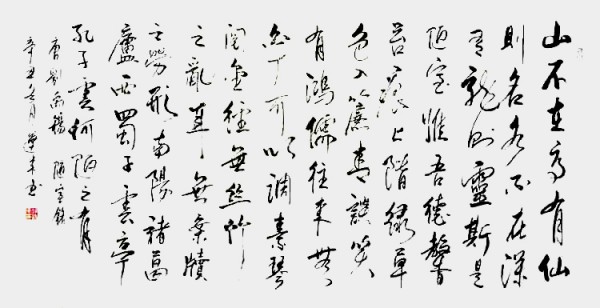 山不在高有仙
則名水不在深
有龍則靈斯是
陋室惟吾德馨
苔痕上階綠草
色入簾青談笑
有鴻儒往來無
白丁可以調素琴
閱金經無絲竹
之亂耳無案牘
之勞形南陽諸葛
廬西蜀子雲亭
孔子雲何陋之有
唐劉禹錫 陋室銘
辛丑月書